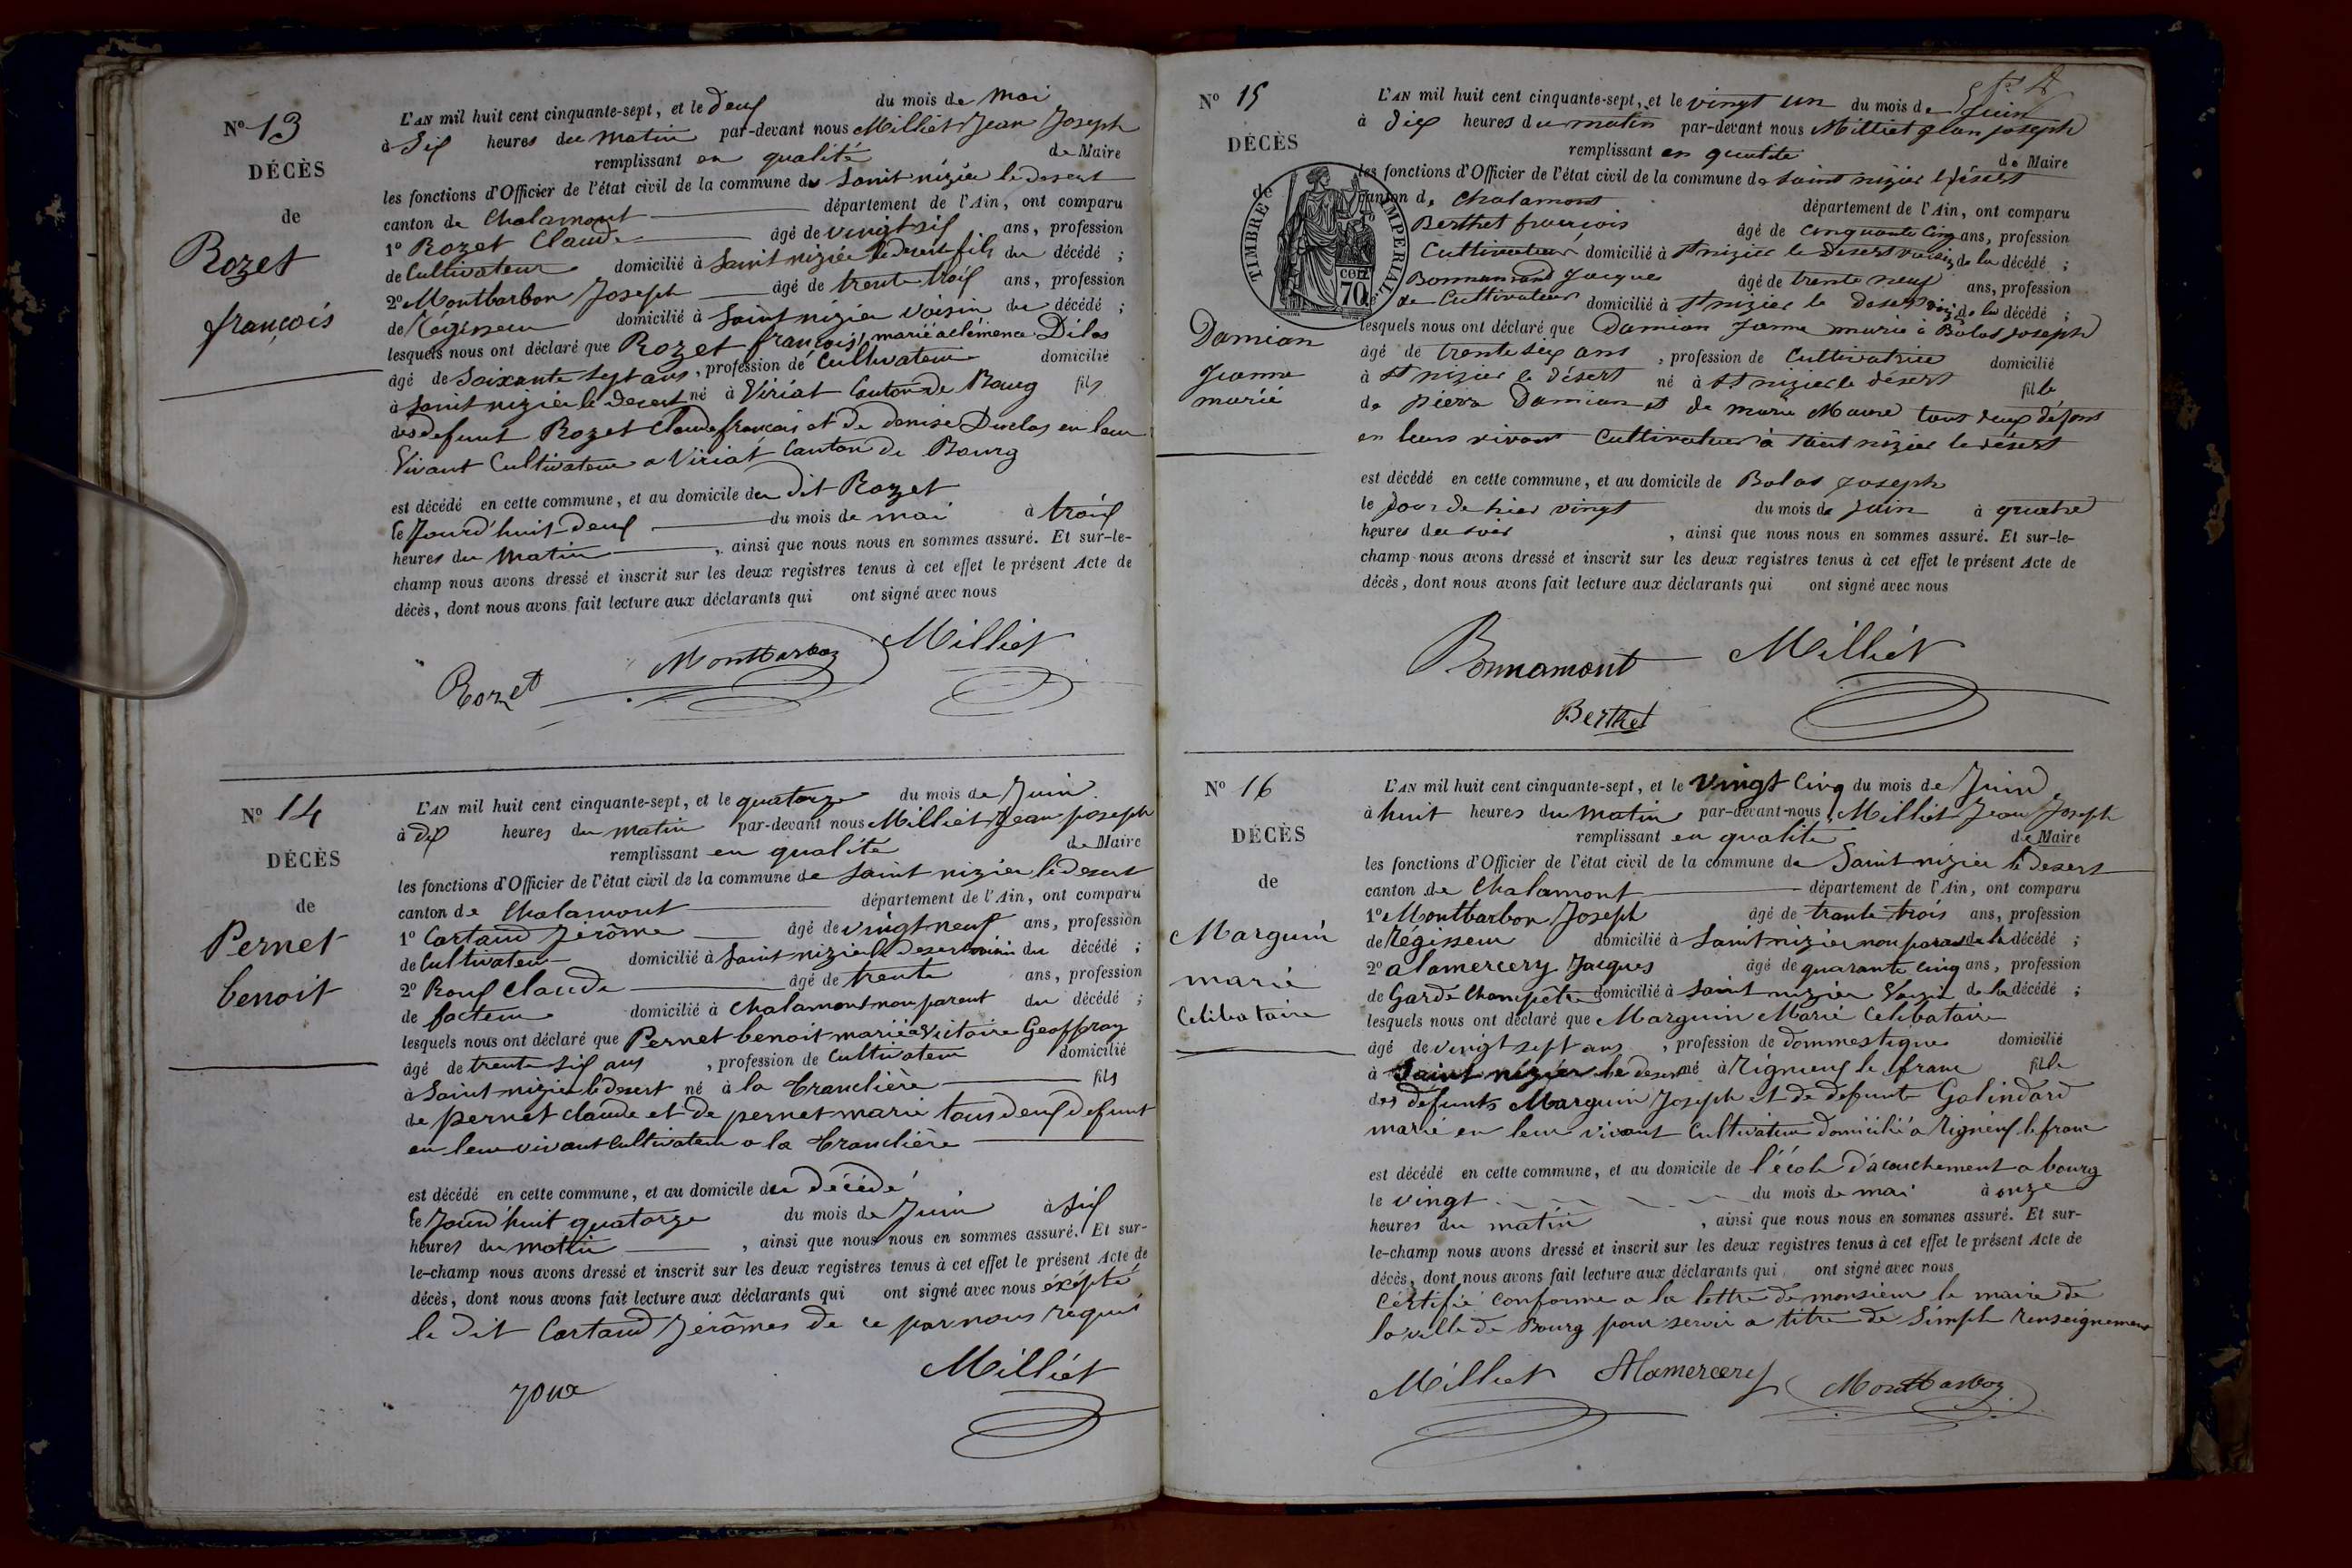 N° 13
DÉCÈS
de
Rozet
françois
L'AN mil huit cent cinquante-sept, et le deux du mois de mai
à Six heures du matin par-devant nous Milliet Jean Joseph
remplissant en qualité de Maire
les fonctions d'Officier de l'état civil de la commune de Saint nizier le desert
canton de Chalamont département de l'Ain, ont comparu
1° Rozet Claude âgé de vingt six ans, profession
de Cultivateur domicilié à Saint nizier le desert fils du décédé ;
2° Montbarbon Joseph âgé de trente trois ans, profession
de Régisseur domicilié à Saint nizier voisin du décédé ;
lesquels nous ont déclaré que Rozet françois, marié a clémence Dilas
âgé de Soixante sept ans, profession de Cultivateur domicilié
à Saint nizier le desert né à Viriat Canton de Bourg fils
des defunt Rozet Claude françois et de denise Duclos en leur
Vivant Cultivateur a Viriat Canton de Bourg
est décédé en cette commune, et au domicile du dit Rozet
le Jourd'huit deux du mois de mai à trois
heures du matin, ainsi que nous nous en sommes assuré. Et sur-le-
champ nous avons dressé et inscrit sur les deux registres tenus à cet effet le présent Acte de
décès, dont nous avons fait lecture aux déclarants qui ont signé avec nous
Rozet Montbarbon Milliet
N° 14
DÉCÈS
de
Pernet
benoit
L'AN mil huit cent cinquante-sept, et le quatorze du mois de Juin
à dix heures du matin par-devant nous Milliet Jean joseph
remplissant en qualité de Maire
les fonctions d'Officier de l'état civil de la commune de Saint nizier le desert
canton de Chalamont département de l'Ain, ont comparu
1° Cartaud Jérôme âgé de vingt neuf ans, profession
de Cultivateur domicilié à Saint nizier le desert voisin du décédé ;
2° Roux Claude âgé de trente ans, profession
de facteur domicilié à Chalamont non parent du décédé ;
lesquels nous ont déclaré que Pernet benoit marié a Victoire Geoffray
âgé de trente six ans, profession de Cultivateur domicilié
à Saint nizier le desert né à la tranclière fils
de pernet claude et de pernet marie tous deux defunt
en leur vivant Cultivateur a la tranclière
est décédé en cette commune, et au domicile du décédé
le Jourd'huit quatorze du mois de Juin à Six
heures du matin, ainsi que nous nous en sommes assuré. Et sur-
le-champ nous avons dressé et inscrit sur les deux registres tenus à cet effet le présent Acte de
décès, dont nous avons fait lecture aux déclarants qui ont signé avec nous éxépté
le dit Cartaud Jérômes de ce par nous requis
Milliet
N° 15
DÉCÈS
TIMBRE IMPERIAL
70
Damian
Jeanne
marié
L'AN mil huit cent cinquante-sept, et le vingt un du mois de Juin
à dix heures du matin par-devant nous Milliet Jean joseph
remplissant en qualité de Maire
les fonctions d'Officier de l'état civil de la commune de Saint nizier le désert
canton de Chalamont département de l'Ain, ont comparu
Berthet françois âgé de cinquante cinq ans, profession
Cultivateur domicilié à St nizier le desert voisin de la décédé ;
Bonnamand Jacques âgé de trente neuf ans, profession
de Cultivateur domicilié à St nizier le desert de la décédé ;
lesquels nous ont déclaré que Damian Jeanne marié à Bolas joseph
âgé de trente six ans, profession de Cultivatrice domicilié
à St nizier le désert né à St nizier le désert fille
de pierre Damian et de marie tous deux défunt
en leurs vivant Cultivateur à Saint nizier le désert
est décédé en cette commune, et au domicile de Bolas joseph
le jour de hier vingt du mois de Juin à quatre
heures du soir, ainsi que nous nous en sommes assuré. Et sur-le-
champ nous avons dressé et inscrit sur les deux registres tenus à cet effet le présent Acte de
décès, dont nous avons fait lecture aux déclarants qui ont signé avec nous
Bonnamont Milliet
Berthet
N° 16
DÉCÈS
de
Marguin
marie
Celibataire
L'AN mil huit cent cinquante-sept, et le vingt Cinq du mois de Juin
à huit heures du matin par-devant-nous Milliet Jean Joseph
remplissant en qualité de Maire
les fonctions d'Officier de l'état civil de la commune de Saint nizier le desert
canton de Chalamont département de l'Ain, ont comparu
1° Montbarbon Joseph âgé de trante trois ans, profession
de Régisseur domicilié à Saint nizier non parent de la décédé ;
2° alamercery Jacques âgé de quarante cinq ans, profession
de Garde Champêtre domicilié à Saint nizier Voisin de la décédé ;
lesquels nous ont déclaré que Marguin Marie Celibataire
âgé de vingt sept ans, profession de dommestique domicilié
à Saint nizier le desert né à Rignieux le franc fille
des défunts Marguin Joseph et de defunte Galindard
marie en leur vivant Cultivateur domicilié a Rignieux le franc
est décédé en cette commune, et au domicile de l'école d'acouchement a bourg
le vingt du mois de mai à onze
heures du matin, ainsi que nous nous en sommes assuré. Et sur-
le-champ nous avons dressé et inscrit sur les deux registres tenus à cet effet le présent Acte de
décès, dont nous avons fait lecture aux déclarants qui ont signé avec nous
Certifié conforme a la lettre de monsieur le maire de
la ville de Bourg pour servir a titre de Simple renseignement
Milliet Alamercery Montbarbon